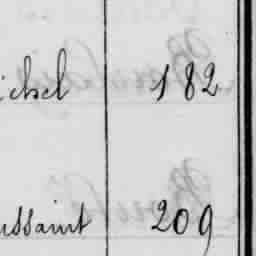 ichel 182
ussaint 209